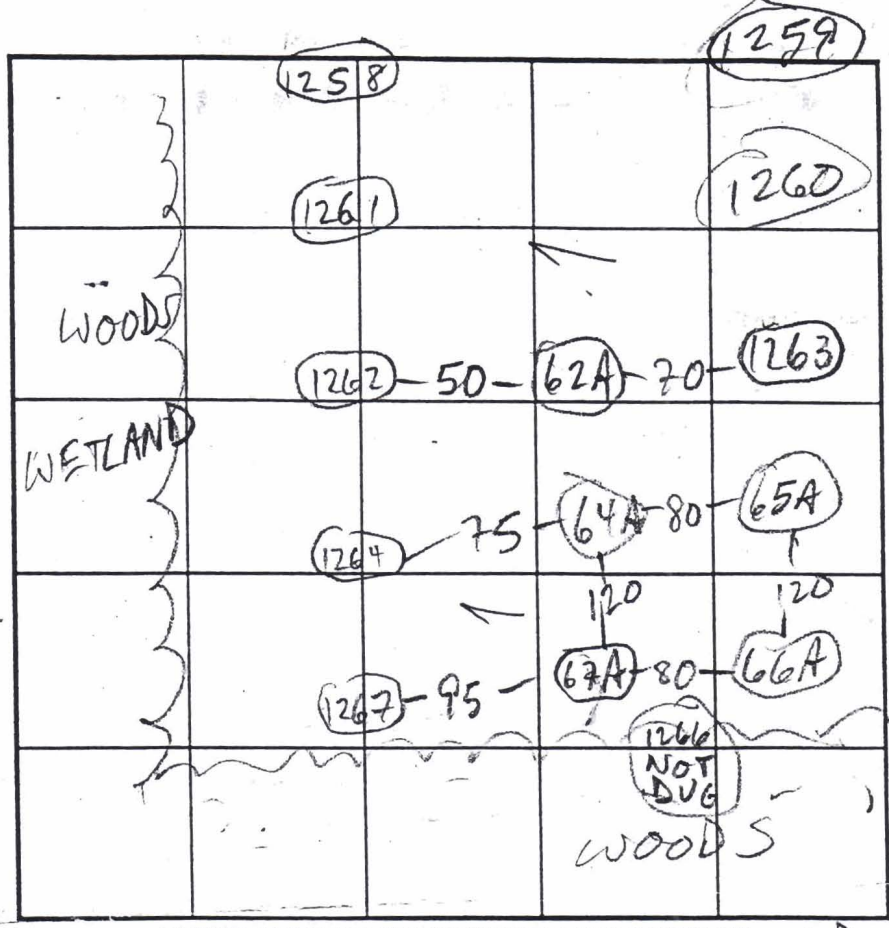 1259
1258
1260
1261
WOODS
1262 - 50 - 62A - 70 - 1263
WETLAND
1264 - 75 - 64A - 80 - 65A
120 120
1267 - 95 - 67A - 80 - 66A
1266
NOT
DUG
WOODS